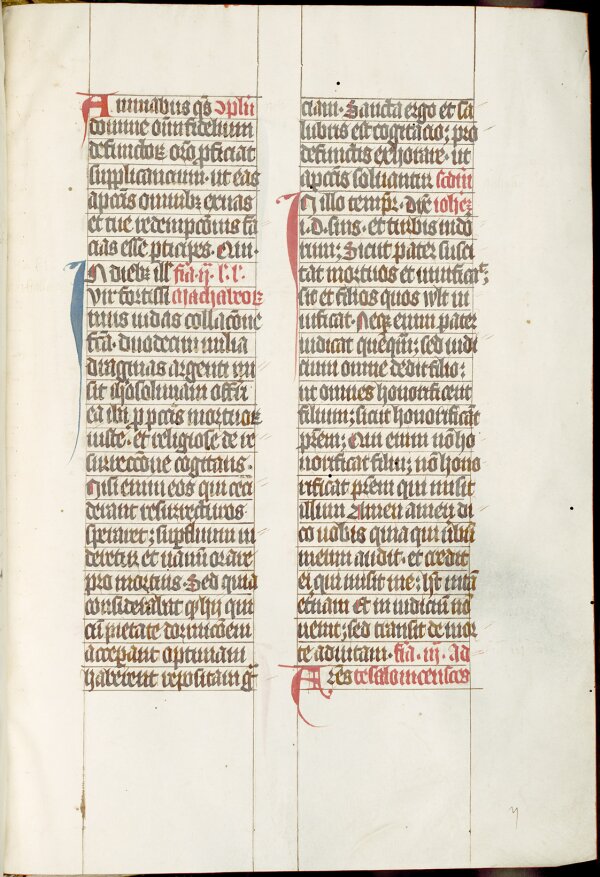 Animabus q̄s ↄplen
domine oīm fidelium
defunctoꝝ oro pficiat
supplicancium · ut eas
a pctīs omnibꝫ exuas
et tue redempcōnis fa
cias esse pticipes · Qui ·
In diebꝫ ill' fīa ·ij· l'· l'·
Vir fortissi machabeoꝝ
mus iudas collacōne
fcā · duodecim milia
dragmas argenti mi
sit ih̄osolimam offerri
ea ibi p pctīs mortuoꝝ
iuste · et religiose de re
surreccōne cogitans ·
Nisi enim eos qui ceci
derant resurrecturos
speraret ; supfluum ui
deretur et uanum orare
pro mortuis · Sed quia
considerabat q̄ hij qui
cū pietate dormicōem
acceperant optimam
haberent repositam grā
ciam · Sancta ergo et sa
lubris est cogitacio ; pro
defunctis exhorare · ut
a pctīs soluantur scdm
In illo tempr̄ · Dix̄ iohēꝫ
i. D. suis · et turbis iudo
rum ; Sicut pater susci
tat mortuos et uiuificat ;
sic et filius quos wlt ui
uificat · Neqꝫ enim pater
iudicat quēqm̄ ; sed iudi
cium omne dedit filio ;
ut omnes honorificent
filium ; sicut honorificāt
prēm ; Qui enim nō ho
norificat filiū ; nō hono
rificat prēm qui misit
illum Amen amen di
co uobis quia qui ūbū
meum audit · et credit
ei qui misit me ; h̄t uitā
et̄nam Et in iudiciū nō
uenit ; sed transit de mor
te ad uitam · fīa · iij · ad
Ares te salo incensces